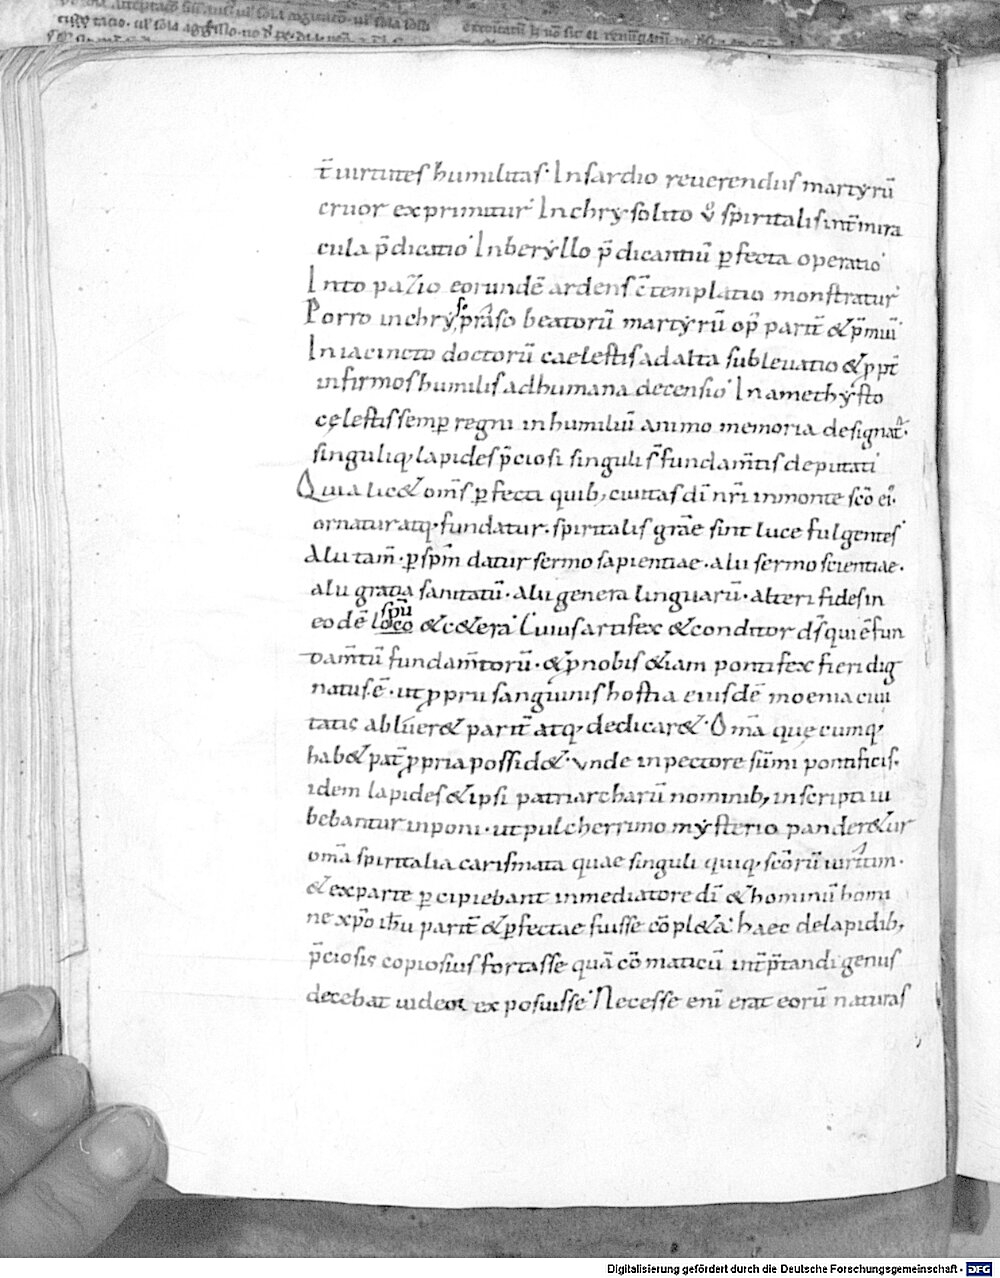 t̄ uirtutes humilitas· In sardio reuerendus martyrū
cruor exprimitur· In chrysolito ů spiritalis int̄ mira
cula p̄dicatio· In beryllo p̄dicantiū ꝑfecta operatio·
In topazio eorundē ardens ct̄emplatio monstratur·
Porro in chrysopraso beatorū martyrū op̄ parit̄ & p̄miū·
In iacincto doctorū caelestis ad alta subleuatio & ꝓpt̄
infirmos humilis ad humana decensio· In amethysto
cęlestis semꝑ regni in humiliū animo memoria designat̄·
singuliq; lapides p̄ciosi singulis fundam̄tis deputati·
Quia lic& om̄s ꝑfecti quib; ciuitas dī nr̄i in monte scō ei·
ornatur atq; fundatur· spiritalis grāe sint luce fulgentes·
Alii tam̄· ꝑ spm̄ datur sermo sapientiae· alii sermo scientiae·
alii gratia sanitatū· alii genera linguarū· alteri fides in
eodē loco spū & c&era· Cuius artifex & conditor ds̄ qui ē fun
dam̄tū fundam̄torū· & ꝓ nobis &iam pontifex fieri dig
natus ē· ut ꝓprii sanguinis hostia eiusdē moenia ciui
tatis abluer& parit̄ atq; dedicar&· Om̄a quęcumq;
hab& pat̄ ꝓpria possid&· vnde in pectore sūmi pontificis·
idem lapides & ipsi patriarcharū nominib; inscripti iu
bebantur inponi· ut pulcherrimo mysterio pander&ur
om̄a spiritalia carismata quae singuli quiq; scōrū uiritim·
& ex parte ꝑcipiebant in mediatore dī & hominū homi
ne xp̄o ih̄u parit̄ & ꝑfectae fuisse cōpl&a· haec de lapidib;
p̄ciosis copiosius fortasse quā cōmaticū int̄p̄tandi genus
decebat uideor exposuisse· Necesse enī erat eorū naturas